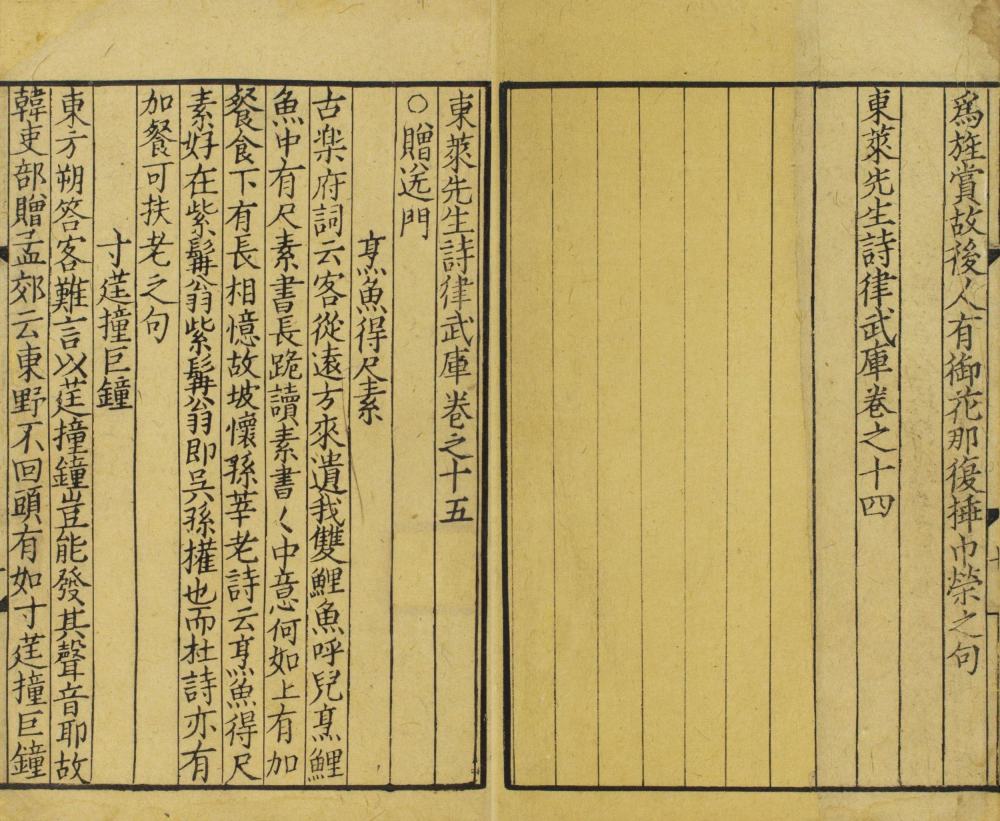 為旌賞故後人有御花那復挿巾榮之句
東萊先生詩律武庫卷之十四
東萊先生詩律武庫卷之十五
○贈送門
烹魚得尺素
古楽府詞云客從遠方來遺我雙鯉魚呼兒烹鯉
魚中有尺素書長跪讀素書〻中意何如上有加
餐食下有長相憶故坡懷孫莘老詩云烹魚得尺
素好在紫髯翁紫髯翁即吳孫權也而杜詩亦有
加餐可扶老之句
寸莛撞巨鐘
東方朔答客難言以莛撞鐘豈能發其聲音耶故
韓吏部贈孟郊云東野不回頭有如寸莛撞巨鐘